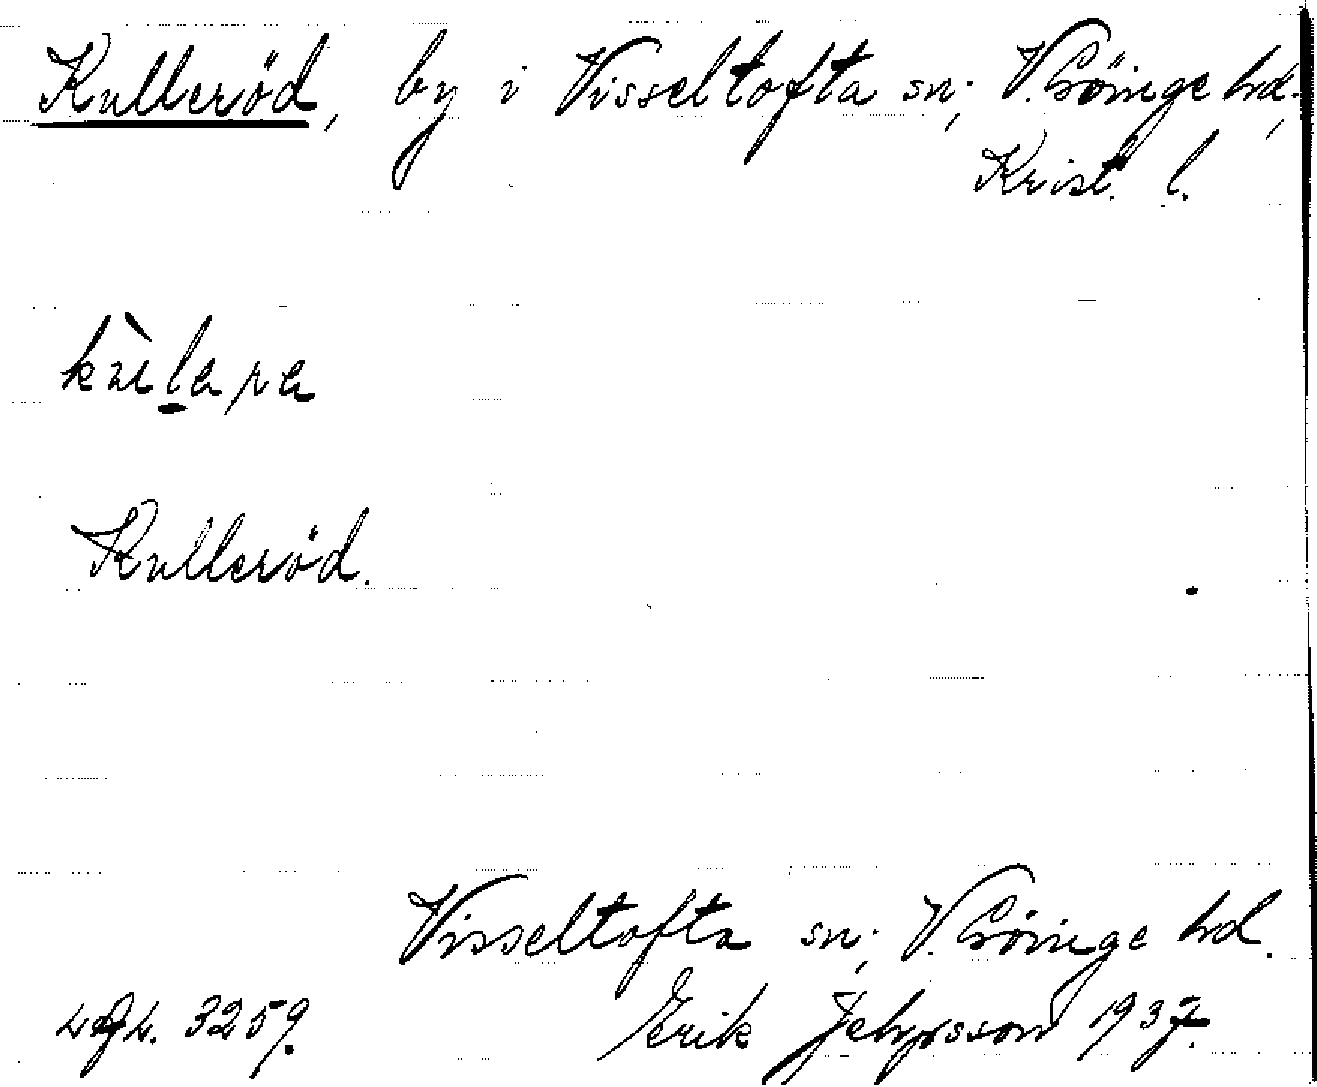 Kulleröd, by i Visseltofta sn; V. Göinge hd.,
Krist. l.
Kulleröd.
Visseltofta sn; V. Göinge hd.
3259. Erik Jeppsson 1937.